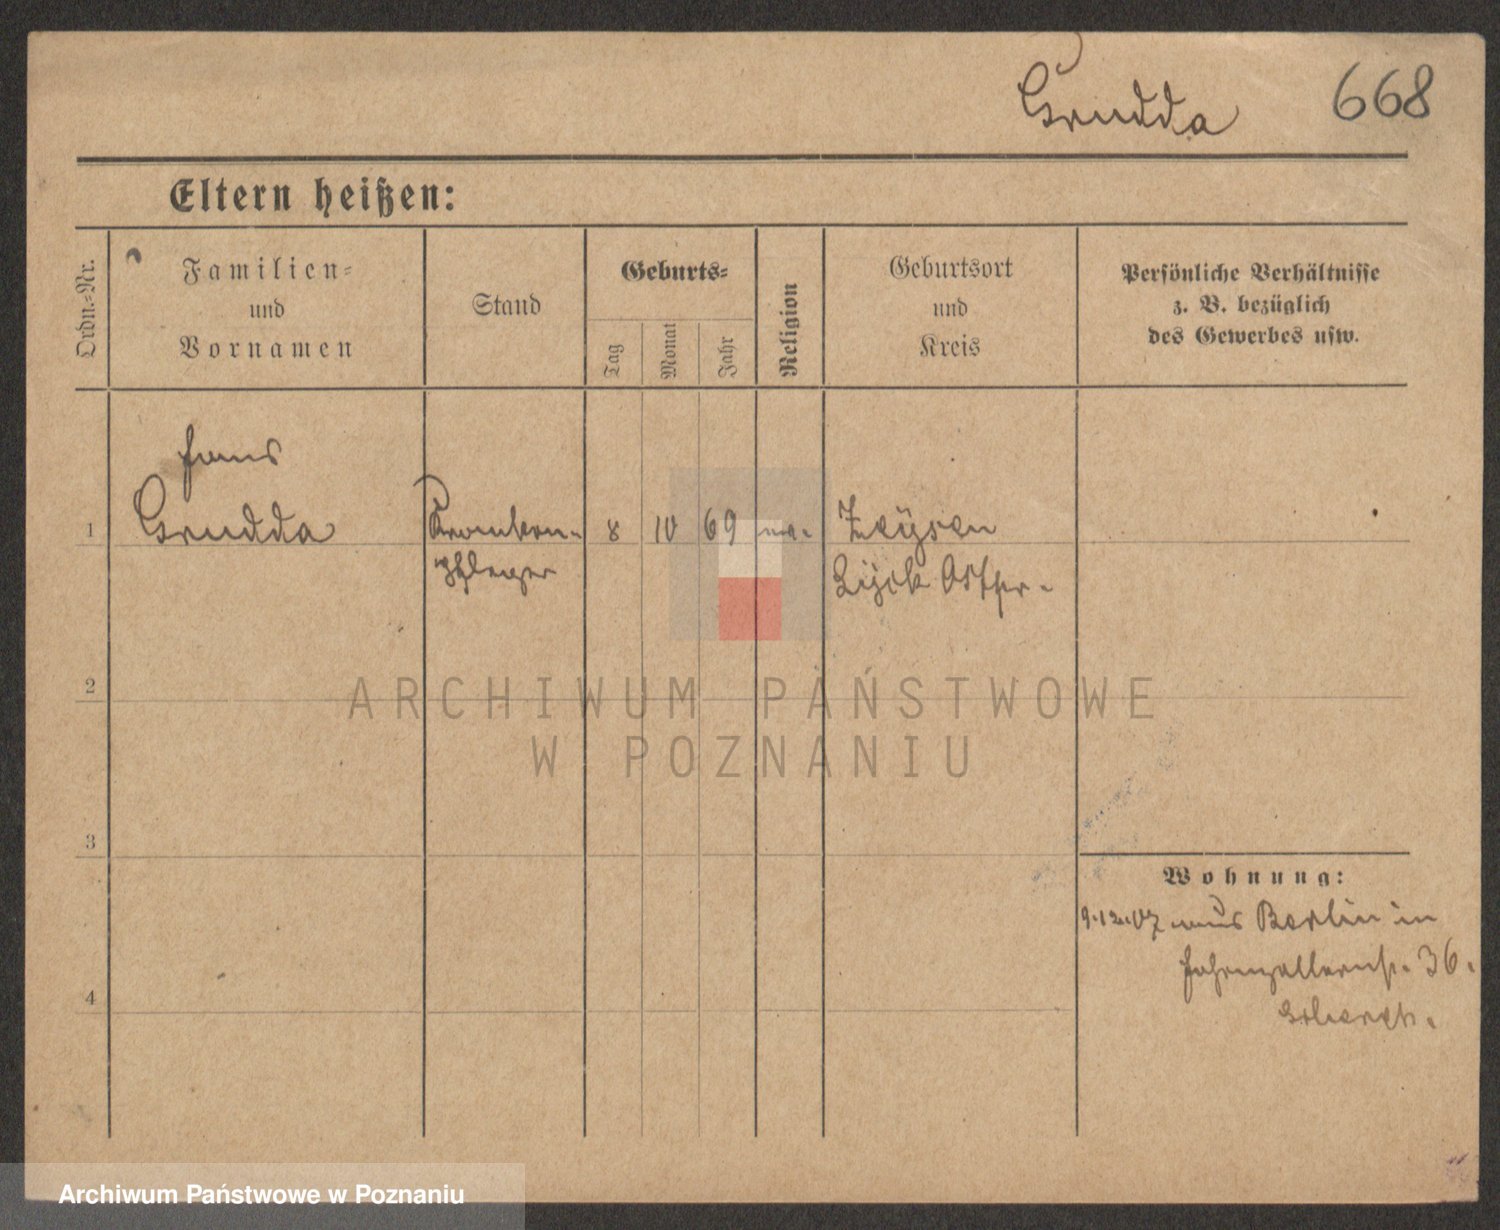 Grudda 668
Eltern heißen:
Ordn=Nr.
Familien=
und
Vornamen
Stand
Geburts=
Tag
Monat
Jahr
Religion
Geburtsort
und
Kreis
Persönliche Verhältnisse
z. B. bezüglich
des Gewerbes usw.
Hans
1 Grudda Kranken- 8 10 69
pfleger Lyck Ostpr.
2
3
4
Wohnung:
9.12.07 aus Berlin in
Hohenzollernstr. 36.
ARCHIWUM PAŃSTWOWE
W POZNANIU
Archiwum Państwowe w Poznaniu